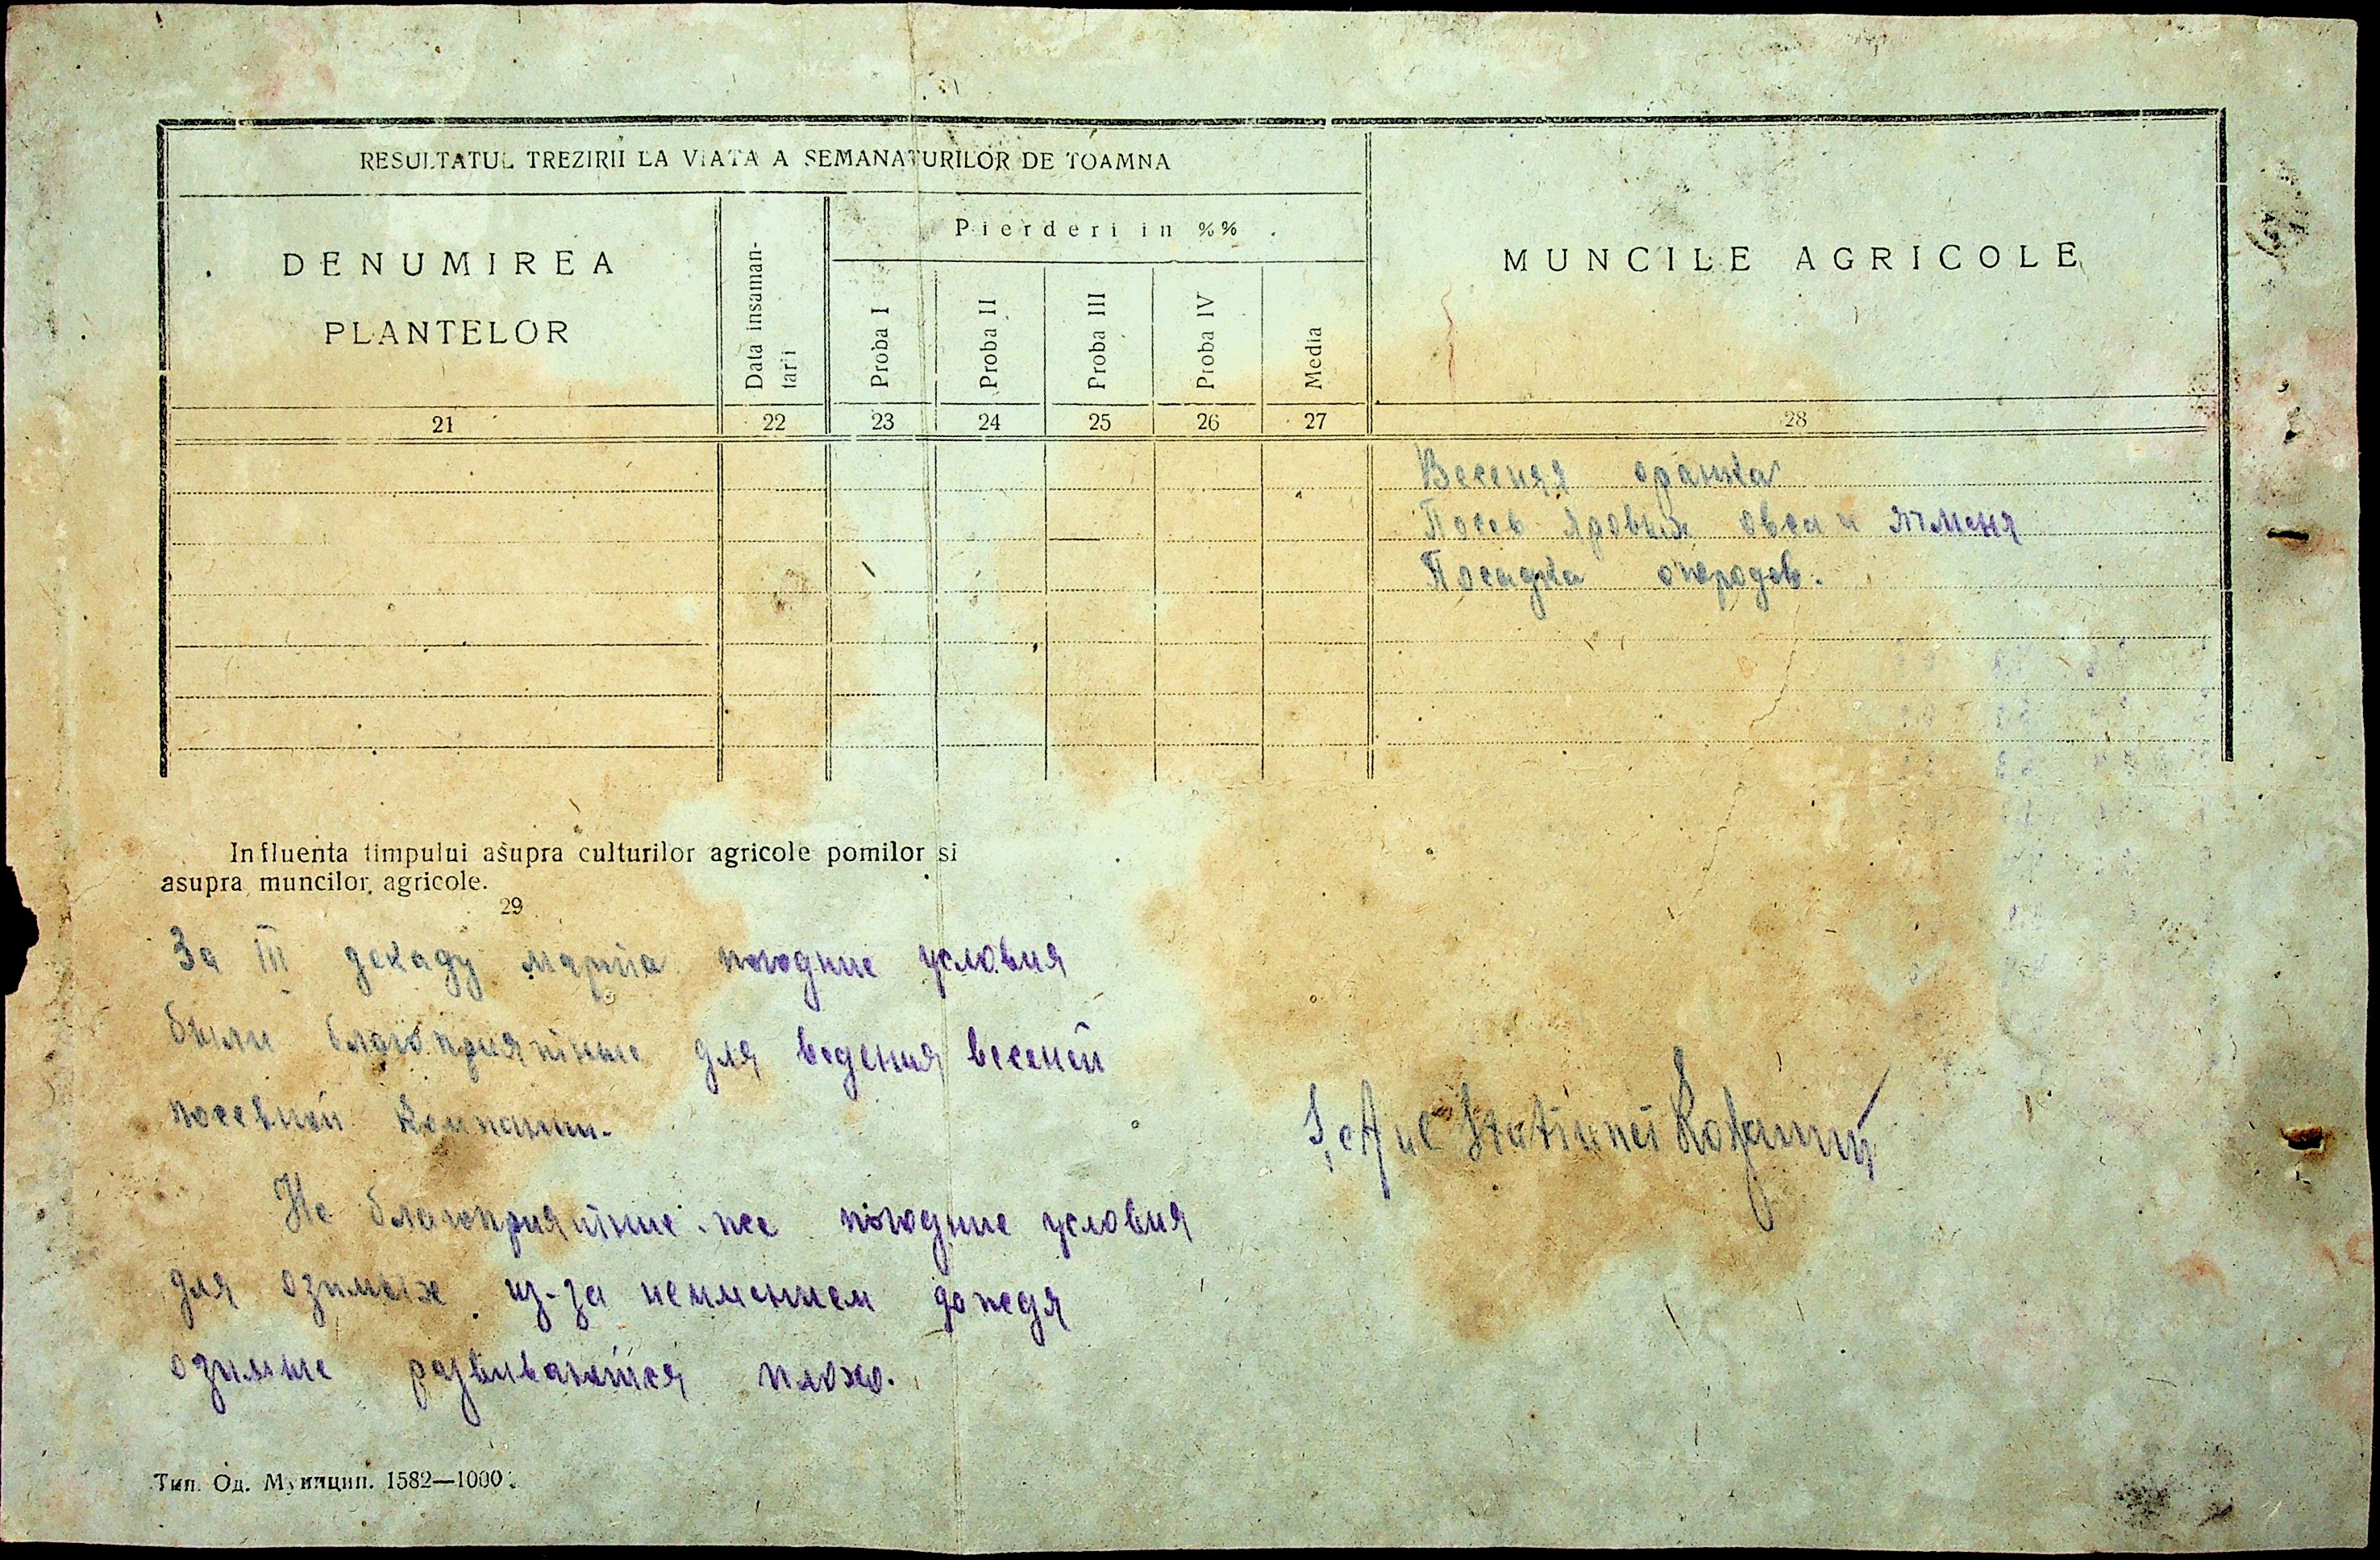 RESULTATUL TREZIRII LA VIATA A SEMANATURILOR DE TOAMNA
DENUMIREA
PLANTELOR
Data insaman-
tarii
Pierderi in %%
Proba I
Proba II
Proba III
Proba IV
Media
MUNCILE AGRICOLE
21 22 23 24 25 26 27 28
Весеняя
Посев яровых овса и ячменя
Посадка огородов.
Influenta timpului asupra culturilor agricole pomilor si
asupra muncilor agricole.
29
За III декаду марта погодние условия
были благоприятные для ведения весеней
посевной компании.
Не благоприятние же погодние условия
для озимых из-за неимением дождя
озимые развиваются плохо.
Șeful Statiunei
Тип. Од. Муницип. 1582—1000.